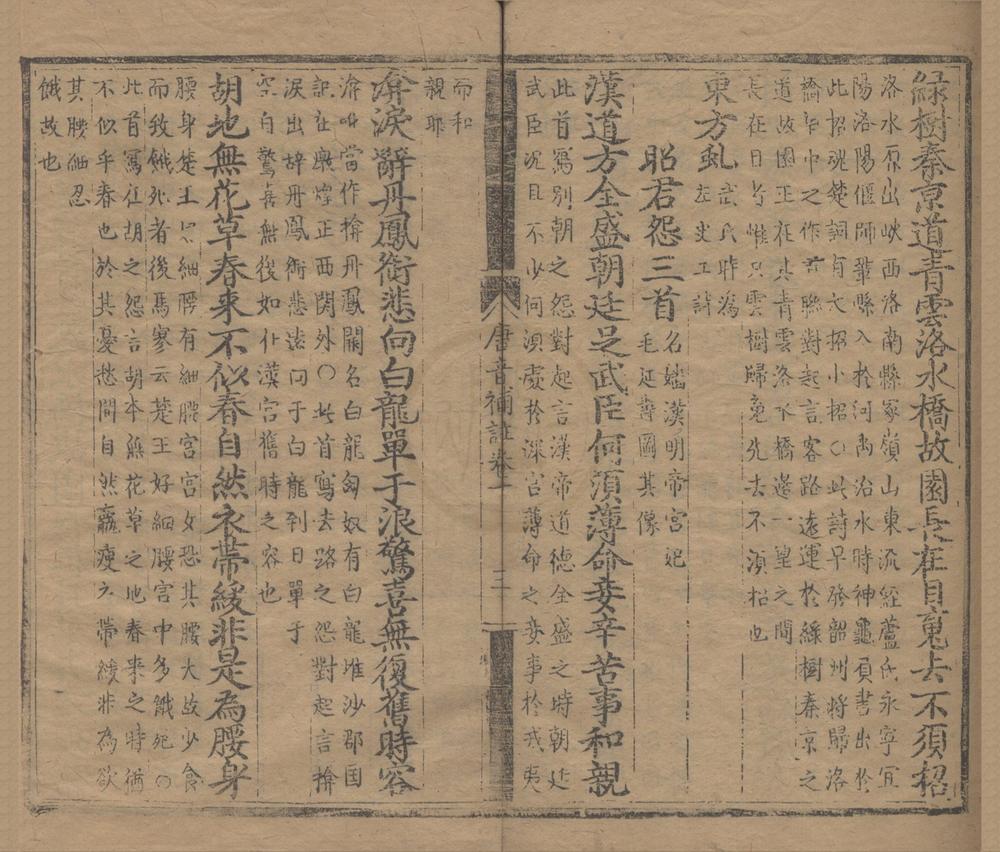 綠樹秦京道青雲洛水橋故園長在目魂去不須招
洛水原出峽西洛南縣冢嶺山東流経蘆氏永寧宜
陽洛陽偃師鞏縣入於河禹治水時神龜負書出於
此招魂楚詞有大招小招〇此詩早發韶州將歸洛
橋之作首聯對起言客路遠運於綠樹秦京之
道故園正在其青雲洛水橋邊一望之間
長在目惟見雲樹歸魂先去不須招也
東方虬武氏時為
左史工詩
昭君怨三首名嬙漢明帝宮妃
毛延壽圖其像
漢道方全盛朝廷足武臣何須薄命妾辛苦事和親
此首寫別朝之怨對起言漢帝道德全盛之時朝廷
武臣况且不少何須處於深宮薄命之妾事於戎夷
而和
親耶
唐音補註卷一 三
渰淚辭丹鳳銜悲向白龍單于浪驚喜無復舊時容
渰當作揜丹鳳闕名白龍匈奴有白龍堆沙郡国
記在燉煌正西関外〇此首寫去路之怨對起言揜
淚出辞丹鳳銜悲遠向于白龍到日單于
空自驚喜無後如什漢宮舊時之容也
胡地無花草春来不似春自然衣帶緩非是為腰身
腰身楚王細腰有細腰宮宮女恐其腰大故少食
而致餓死者後馬寥云楚王好細腰宮中多餓死〇
此首寫在胡之怨言胡本無花草之地春来之時猶
不似乎春也於其憂愁間自然羸瘦衣帶緩非為欲
其腰細忍
餓故也